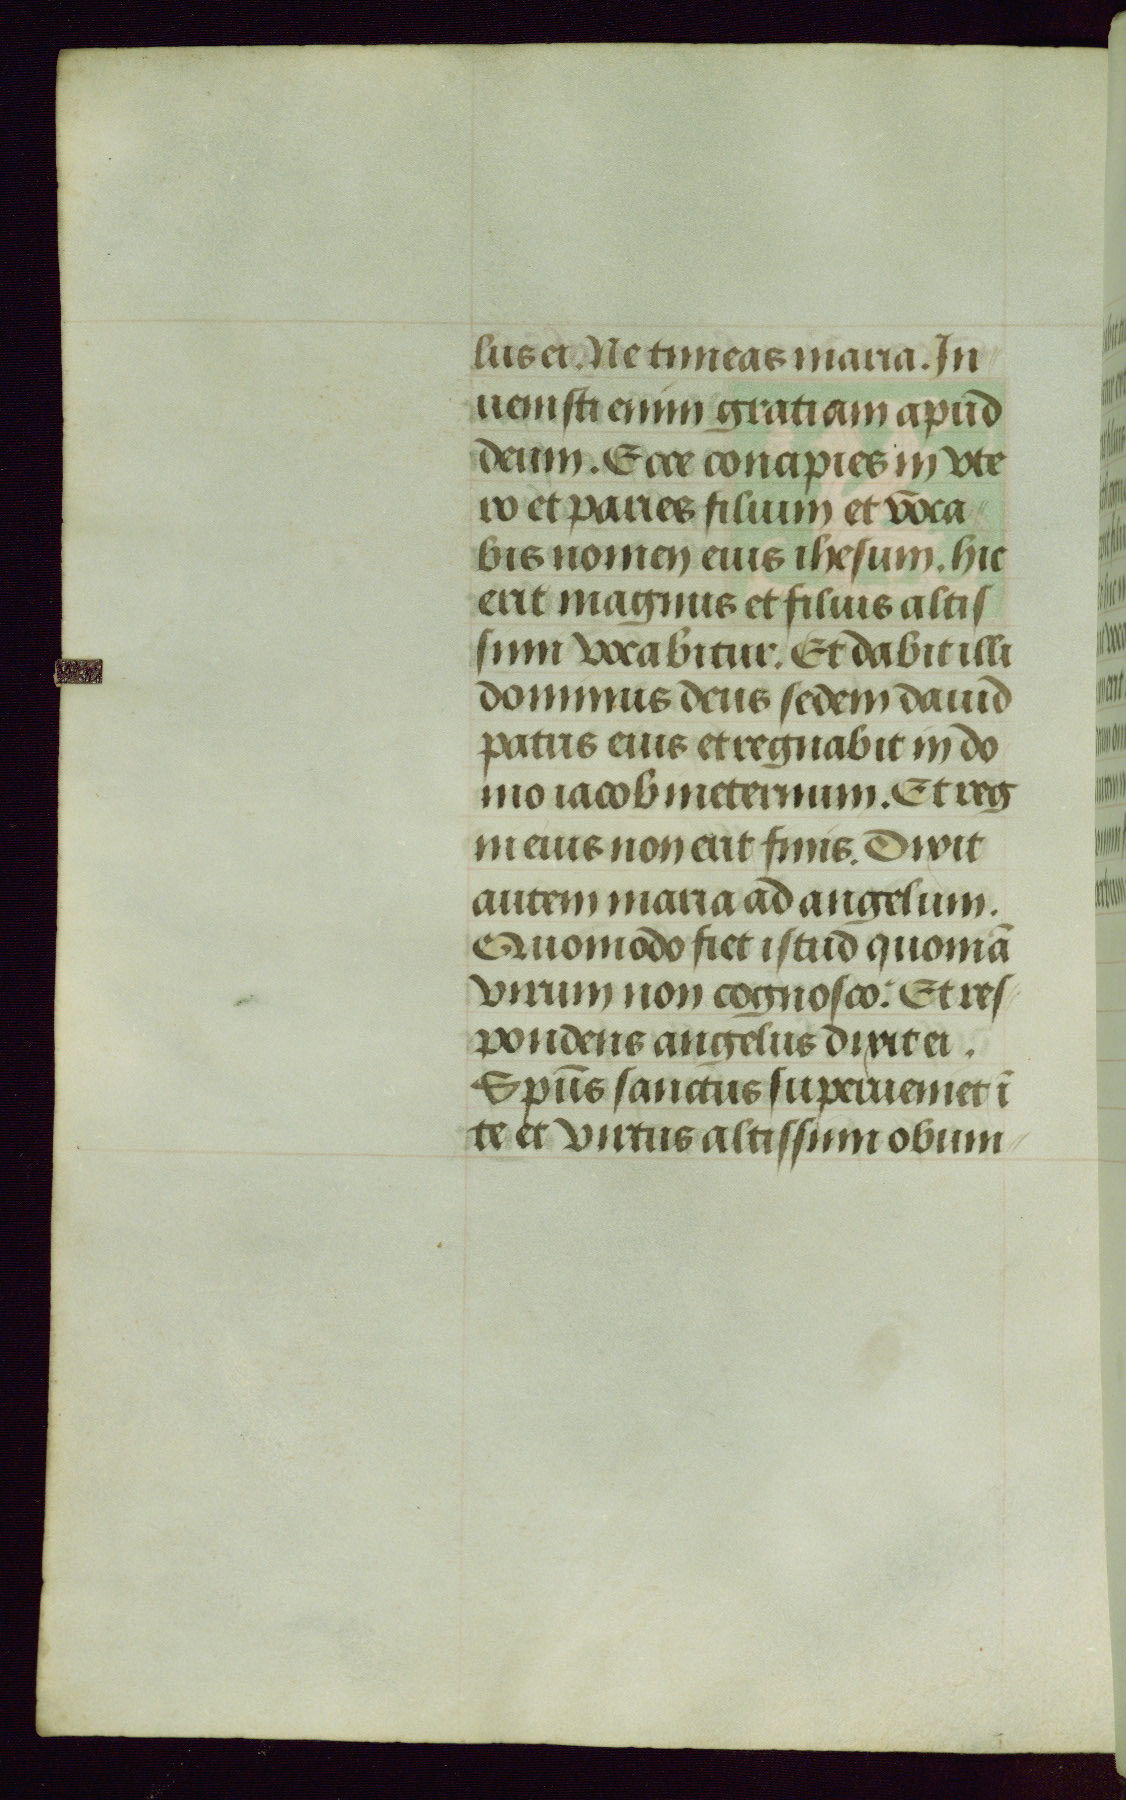 lus ei. Ne timeas maria. In
uenisti enim gratiam apud
deum. Ecce concipies in vte
ro et paries filium et voca
bis nomen eius ihesum. hic
erit magnus et filius altis
simi vocabitur. Et dabit illi
dominus deus sedem dauid
patris eius et regnabit in do
mo iacob in eternum. Et reg
ni eius non erit finis. Dixit
autem maria ad angelum.
Quomodo fiet istud quoniā
virum non cognosco. Et res
pondens angelus dixit ei.
Spūs sanctus superueniet ī
te et virtus altissimi obum